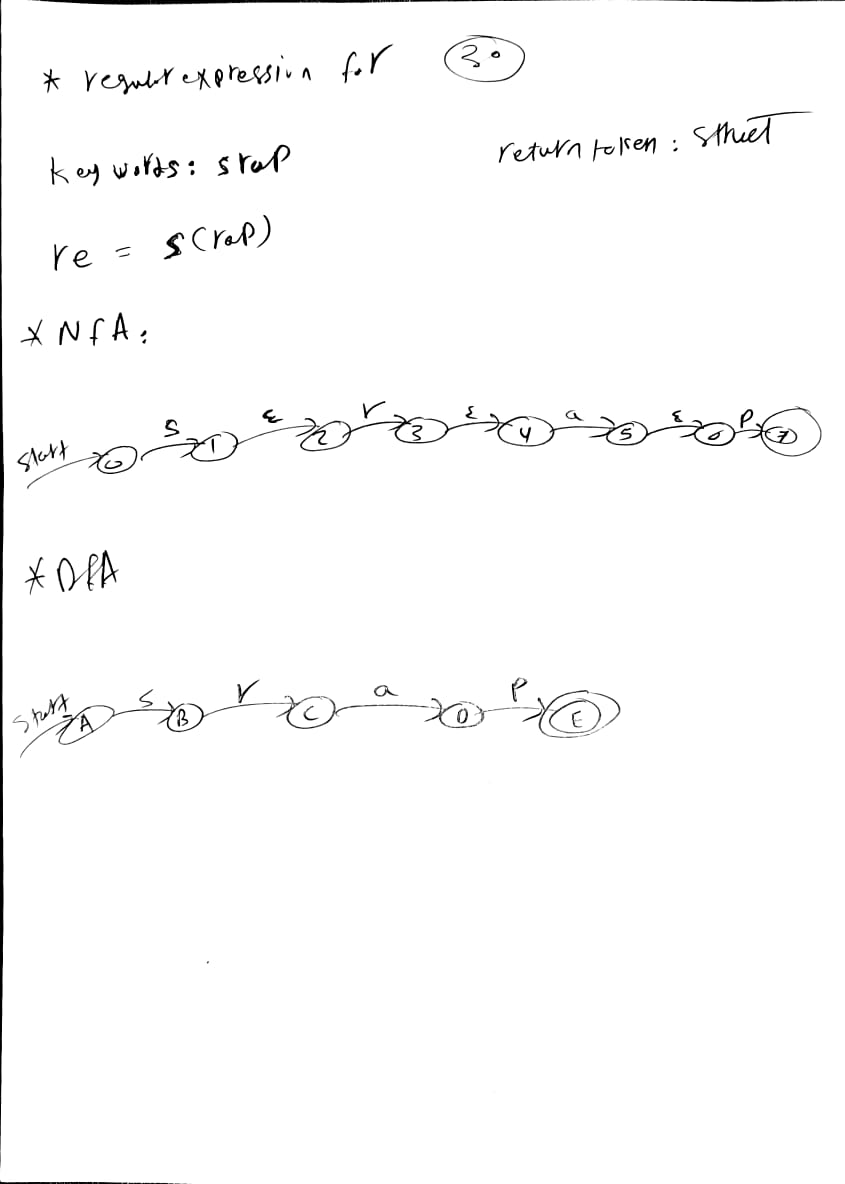 * regular expression for 30
key words: srap
return token: Struct
re = s(rap)
* NFA:
Start 0 s 1 ε 2 r 3 ε 4 a 5 ε 6 p 7
* DFA
Start A s B r C a D p E